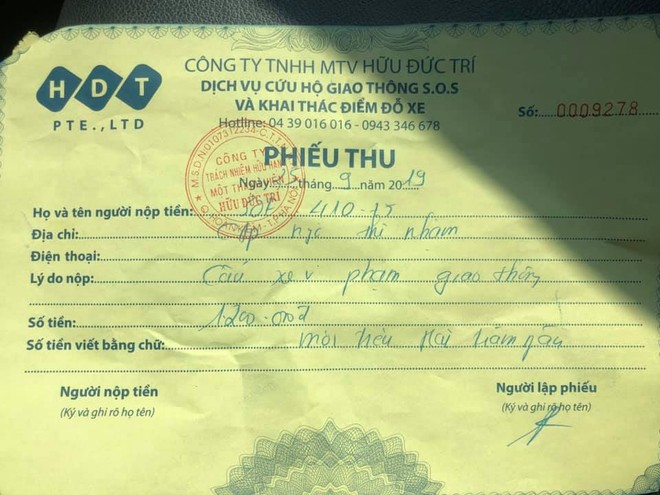 HDT
PTE.,LTD
CÔNG TY TNHH MTV HỮU ĐỨC TRÍ
DỊCH VỤ CỨU HỘ GIAO THÔNG S.O.S
VÀ KHAI THÁC ĐIỂM ĐỖ XE
Hotline: 04 39 016 016 - 0943 346 678
Số: 0009278
PHIẾU THU
CÔNG TY
TRÁCH NHIỆM HỮU HẠN
MỘT THÀNH VIÊN
HỮU ĐỨC TRÍ
Ngày 25 tháng 9 năm 2019
Họ và tên người nộp tiền: 30E 410-75
Địa chỉ: ngô thì nhậm
Điện thoại:
Lý do nộp: Cẩu xe vi phạm giao thông
Số tiền: 1200.000đ
Số tiền viết bằng chữ: một triệu Hai trăm
Người nộp tiền
(Ký và ghi rõ họ tên)
Người lập phiếu
(Ký và ghi rõ họ tên)